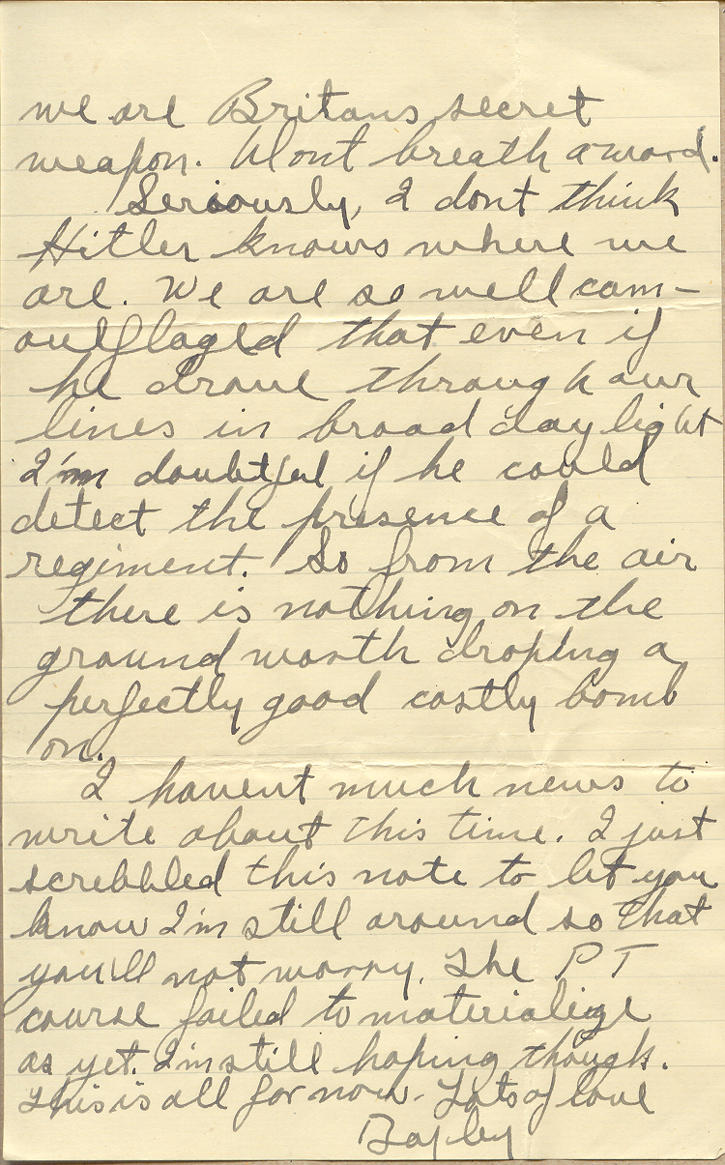 we are Britans secret
weapon. Wont breath a word.
Seriously, I dont think
Hitler knows where we
are. We are so well cam-
ouflaged that even if
he drove through our
lines in broad daylight
I'm doubtful if he could
detect the presence of a
regiment. So from the air
there is nothing on the
ground worth droping a
perfectly good costly bomb
on.
I havent much news to
write about this time. I just
screbbled this note to let you
know I'm still around so that
you'll not worry. The PT
course failed to materialize
as yet. I'm still hoping though.
This is all for now. Lots of love